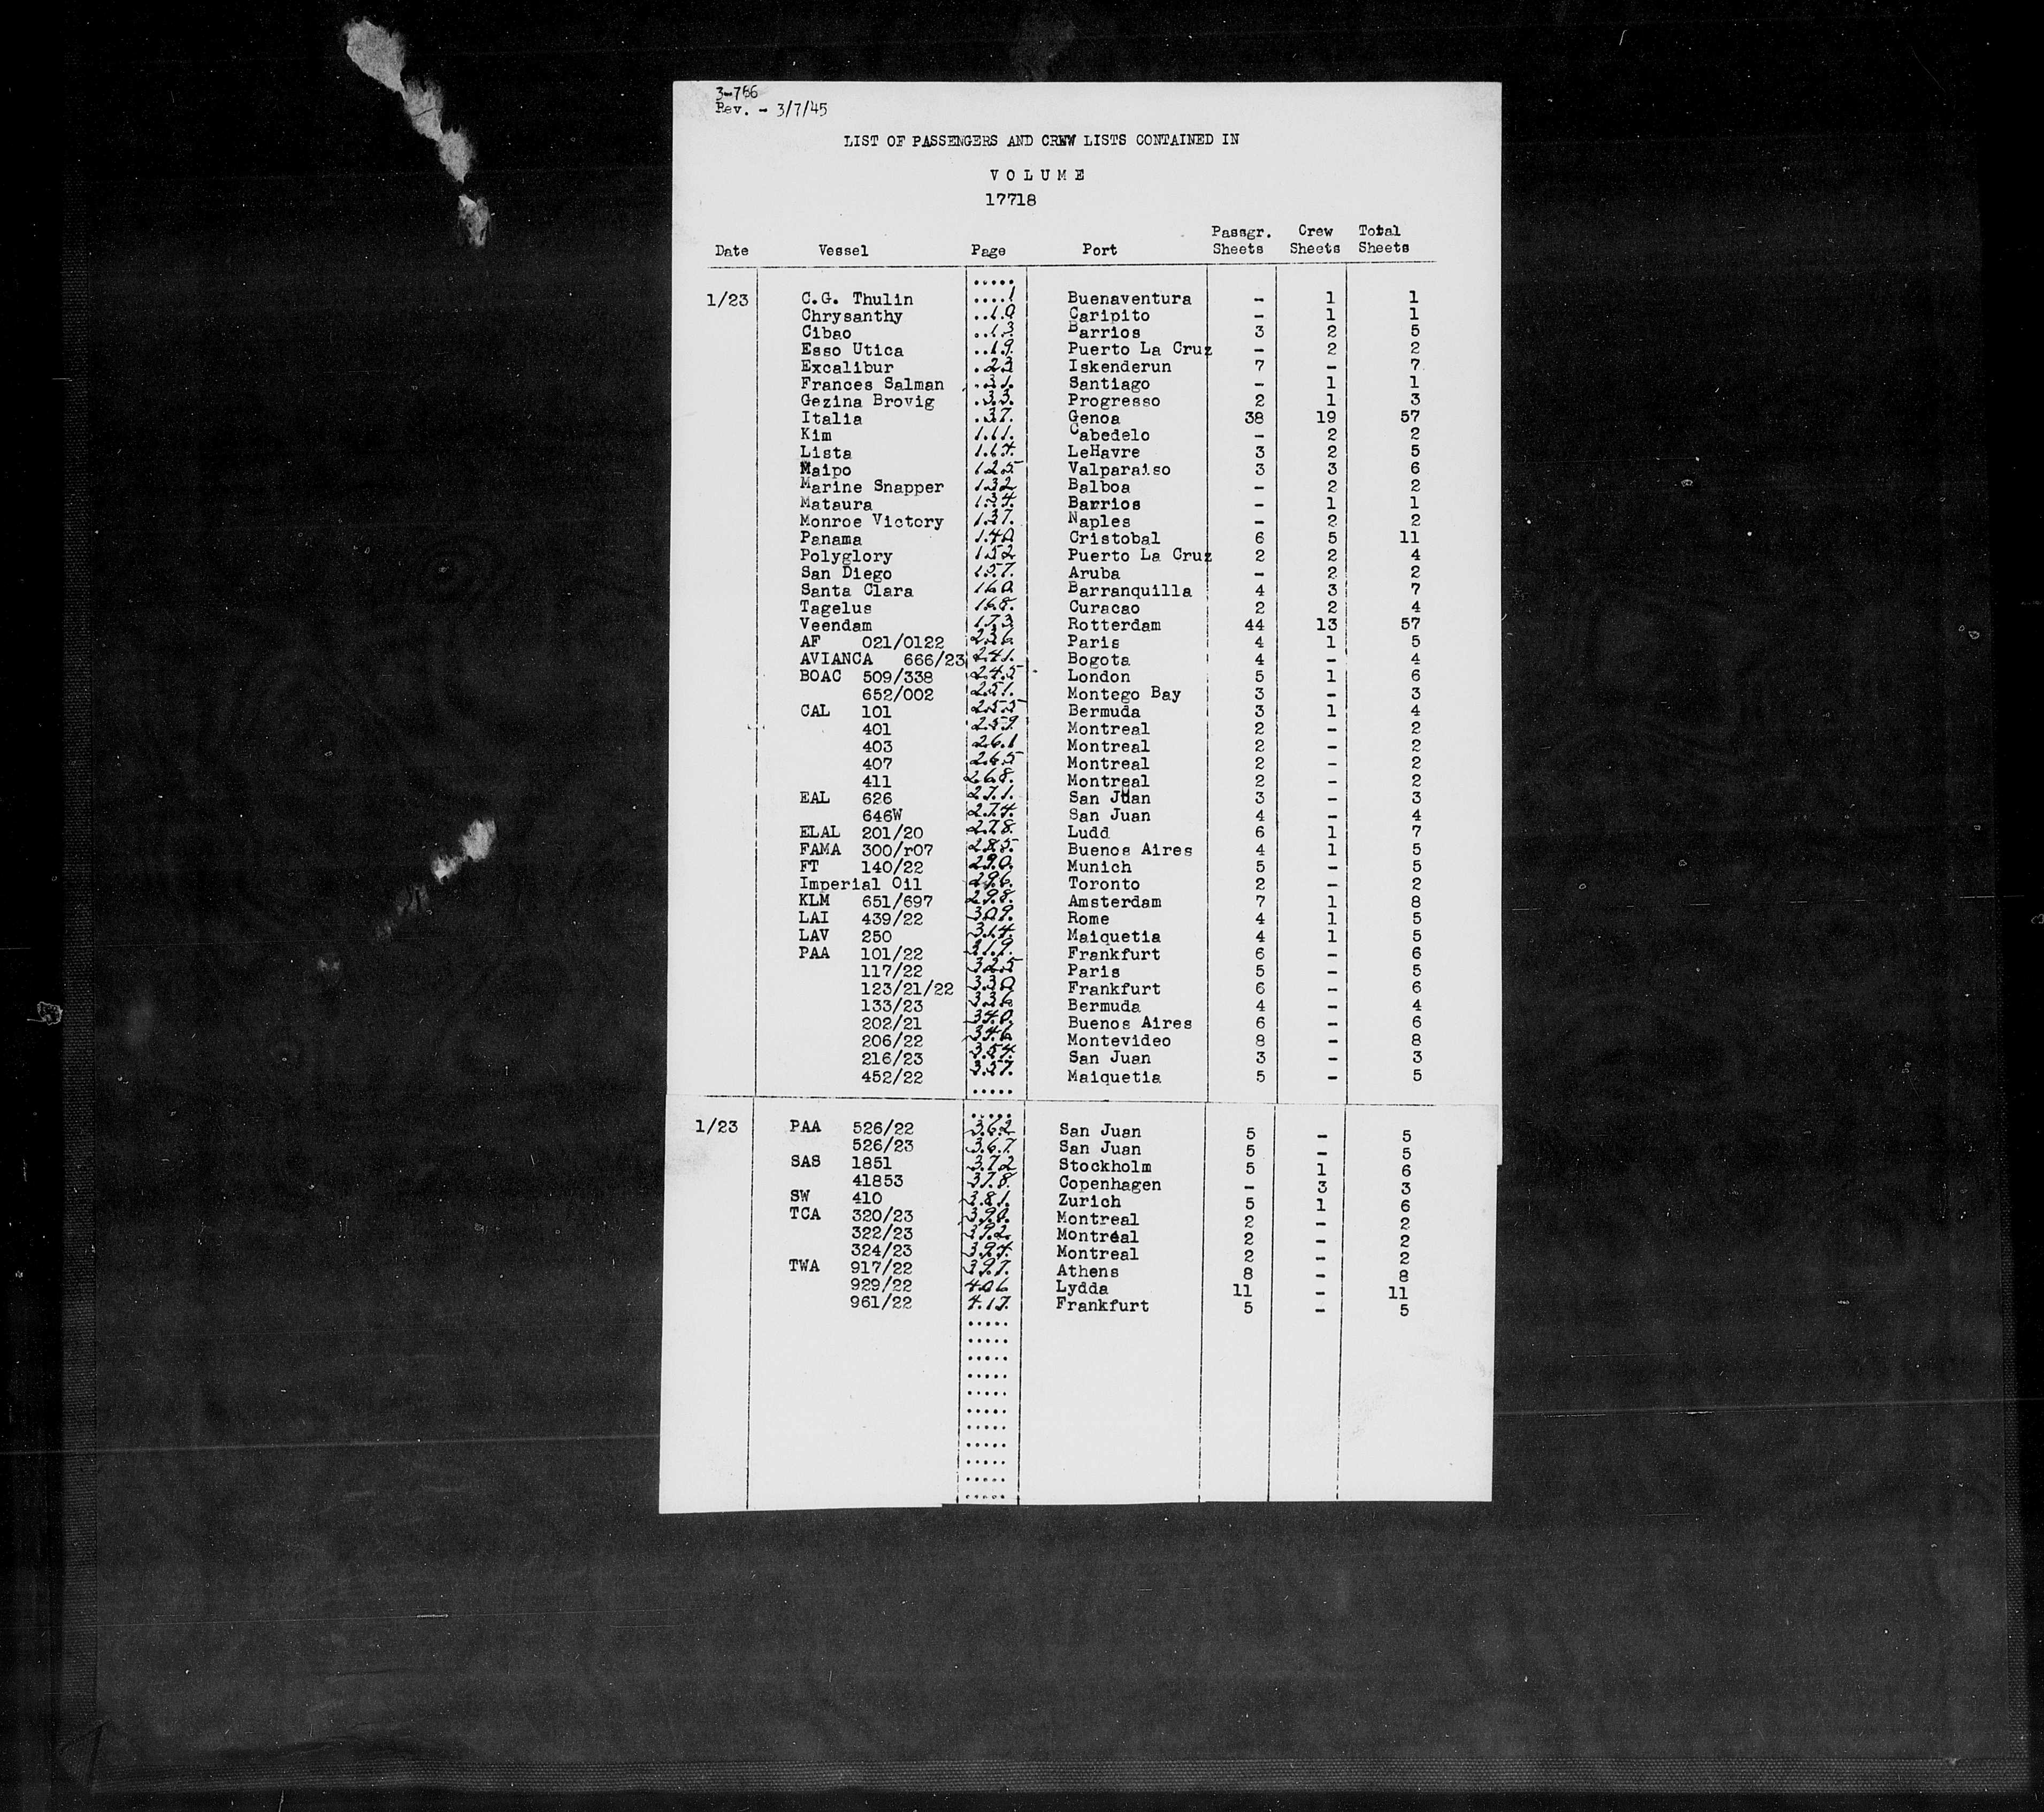 3-766
Rev. - 3/7/45
LIST OF PASSENGERS AND CREW LISTS CONTAINED IN
VOLUME
17718
Date Vessel Page Port Passgr. Sheets Crew Sheets Total Sheets
1/23 C.G. Thulin 1 Buenaventura - 1 1
Chrysanthy 10 Caripito - 1 1
Cibao 13 Barrios 3 2 5
Esso Utica 19 Puerto La Cruz - 2 2
Excalibur 23 Iskenderun 7 - 7
Frances Salman 31 Santiago - 1 1
Gezina Brovig 33 Progresso 2 1 3
Italia 37 Genoa 38 19 57
Kim 111 Cabedelo - 2 2
Lista 117 LeHavre 3 2 5
Maipo 125 Valparaiso 3 3 6
Marine Snapper 132 Balboa - 2 2
Mataura 134 Barrios - 1 1
Monroe Victory 137 Naples - 2 2
Panama 140 Cristobal 6 5 11
Polyglory 152 Puerto La Cruz 2 2 4
San Diego 157 Aruba - 2 2
Santa Clara 160 Barranquilla 4 3 7
Tagelus 168 Curacao 2 2 4
Veendam 173 Rotterdam 44 13 57
AF 021/0122 236 Paris 4 1 5
AVIANCA 666/23 241 Bogota 4 - 4
BOAC 509/338 245 London 5 1 6
652/002 251 Montego Bay 3 - 3
CAL 101 255 Bermuda 3 1 4
401 259 Montreal 2 - 2
403 261 Montreal 2 - 2
407 265 Montreal 2 - 2
411 268 Montreal 2 - 2
EAL 626 271 San Juan 3 - 3
646W 274 San Juan 4 - 4
ELAL 201/20 278 Ludd 6 1 7
FAMA 300/r07 285 Buenos Aires 4 1 5
FT 140/22 290 Munich 5 - 5
Imperial Oil 296 Toronto 2 - 2
KLM 651/697 298 Amsterdam 7 1 8
LAI 439/22 309 Rome 4 1 5
LAV 250 314 Maiquetia 4 1 5
PAA 101/22 319 Frankfurt 6 - 6
117/22 325 Paris 5 - 5
123/21/22 330 Frankfurt 6 - 6
133/23 336 Bermuda 4 - 4
202/21 340 Buenos Aires 6 - 6
206/22 346 Montevideo 8 - 8
216/23 354 San Juan 3 - 3
452/22 357 Maiquetia 5 - 5
1/23 PAA 526/22 362 San Juan 5 - 5
526/23 367 San Juan 5 - 5
SAS 1851 372 Stockholm 5 1 6
41853 378 Copenhagen - 3 3
SW 410 381 Zurich 5 1 6
TCA 320/23 390 Montreal 2 - 2
322/23 392 Montreal 2 - 2
324/23 394 Montreal 2 - 2
TWA 917/22 397 Athens 8 - 8
929/22 406 Lydda 11 - 11
961/22 417 Frankfurt 5 - 5